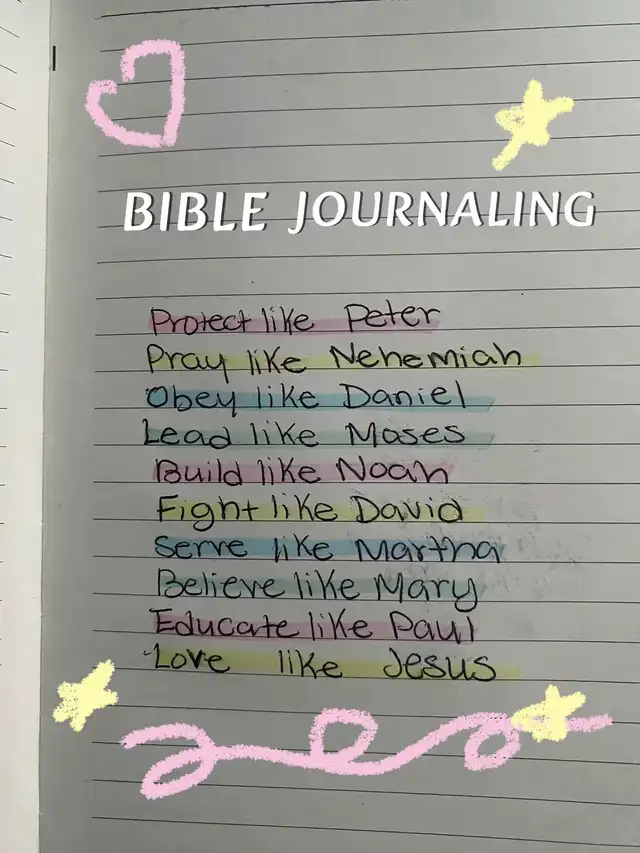 BIBLE JOURNALING
Protect like Peter
Pray like Nehemiah
Obey like Daniel
Lead like Moses
Build like Noah
Fight like David
Serve like Martha
Believe like Mary
Educate like Paul
Love like Jesus